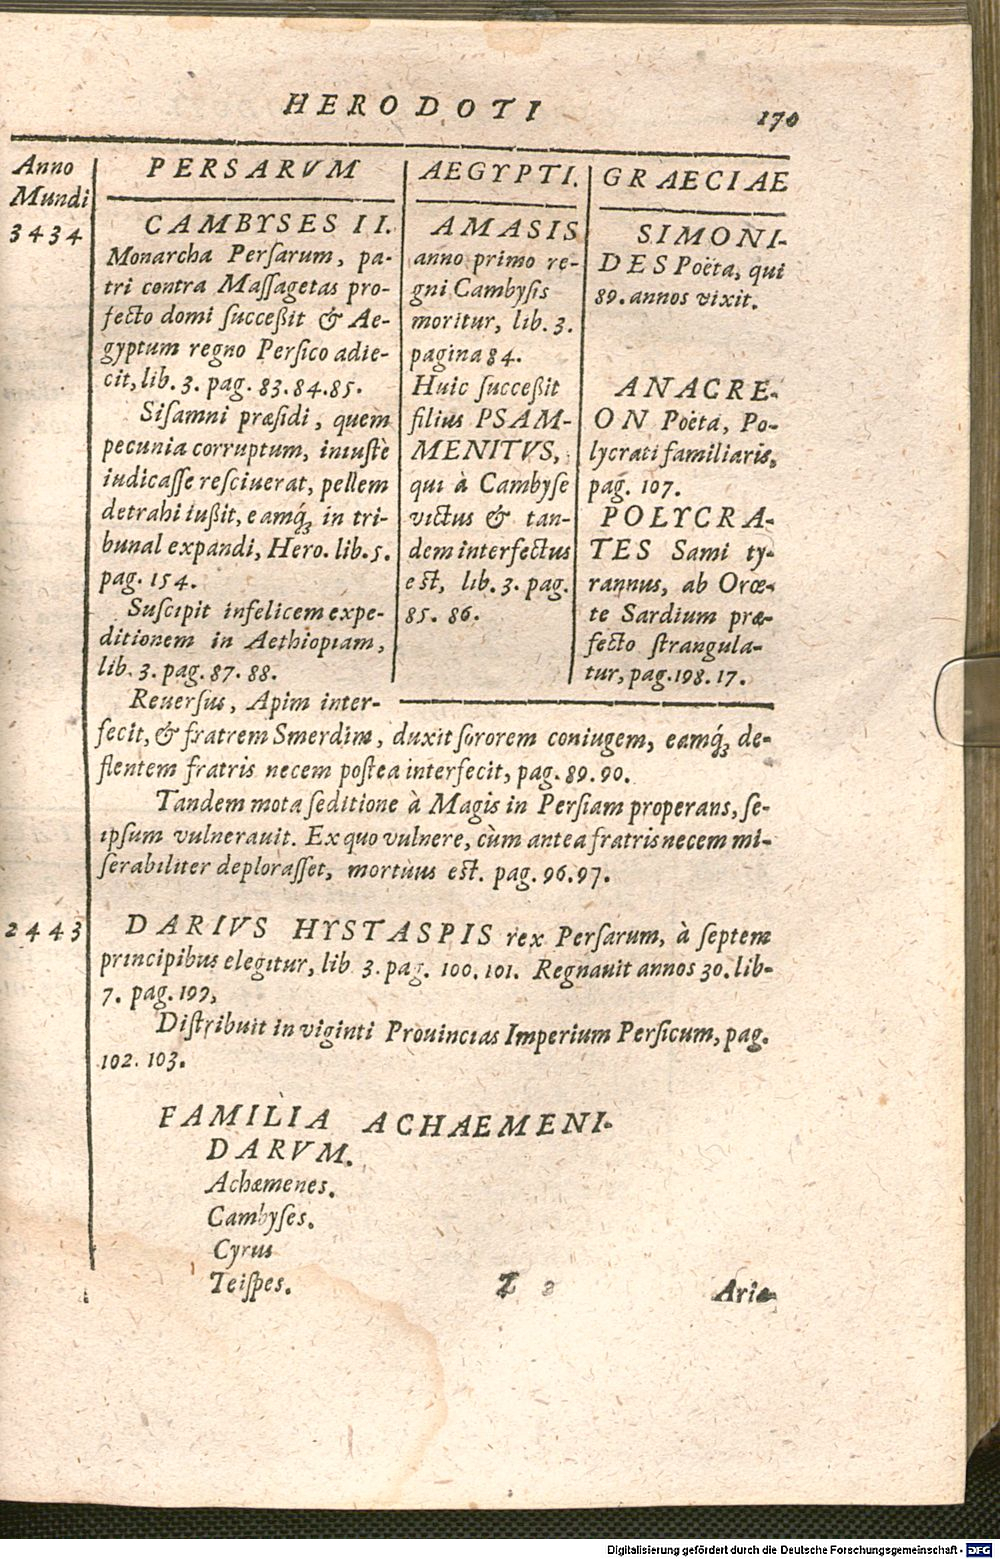 HERODOTI
170
Anno
Mundi
3434
PERSARVM
CAMBYSES II.
Monarcha Perſarum, pa-
tri contra Maſſagetas pro-
fecto domi ſucceßit & Ae-
gyptum regno Perſico adie-
cit, lib. 3. pag. 83. 84. 85.
Siſamni præſidi, quem
pecunia corruptum, iniuſtè
iudicaſſe reſciuerat, pellem
detrahi iußit, eamq́ꝫ in tri-
bunal expandi, Hero. lib. 5.
pag. 154.
Suſcipit infelicem expe-
ditionem in Aethiopiam,
lib. 3. pag. 87. 88.
AEGYPTI.
AMASIS
anno primo re-
gni Cambyſis
moritur, lib. 3.
pagina 84.
Huic ſucceßit
filius PSAM-
MENITVS,
qui à Cambyſe
victus & tan-
dem interfectus
est, lib. 3. pag.
85. 86.
GRAECIAE
SIMONI-
DES Poëta, qui
89. annos vixit.
ANACRE-
ON Poëta, Po-
lycrati familiaris,
pag. 107.
POLYCRA-
TES Sami ty-
rannus, ab Orœ-
te Sardium præ-
fecto ſtrangula-
tur, pag. 108. 17.
Reuerſus, Apim inter-
fecit, & fratrem Smerdim, duxit ſororem coniugem, eamq́ꝫ de-
flentem fratris necem poſtea interfecit, pag. 89. 90.
Tandem mota ſeditione à Magis in Perſiam properans, ſe-
ipſum vulnerauit. Ex quo vulnere, cùm antea fratris necem mi-
ſerabiliter deploraſſet, mortuus est. pag. 96. 97.
2443
DARIVS HYSTASPIS rex Perſarum, à ſeptem
principibus elegitur, lib 3. pag. 100. 101. Regnauit annos 30. lib-
7. pag. 199,
Diſtribuit in viginti Prouincias Imperium Perſicum, pag.
102. 103.
FAMILIA ACHAEMENI-
DARVM.
Achæmenes.
Cambyſes.
Cyrus
Teiſpes.
Z 2
Aria-
Digitalisierung gefördert durch die Deutsche Forschungsgemeinschaft - DFG